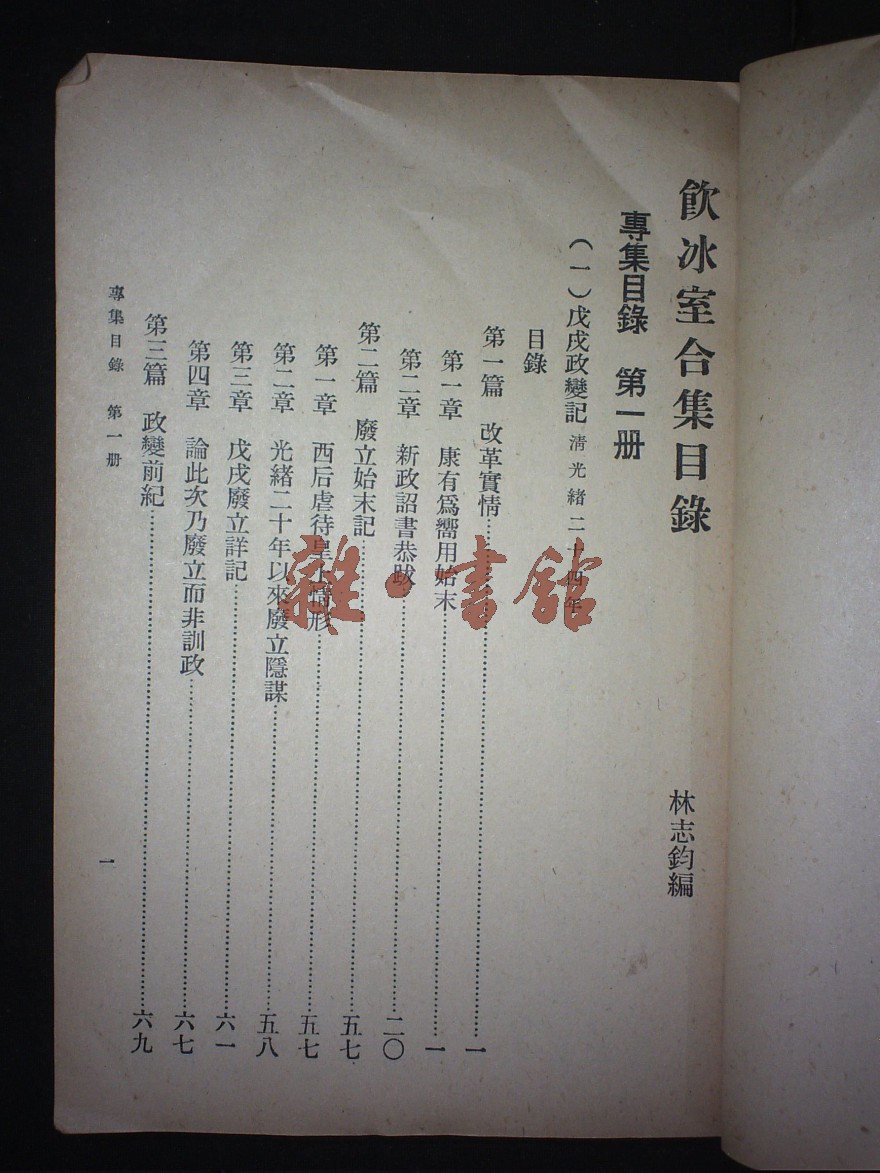 飮冰室合集目錄
林志鈞編
專集目錄 第一册
(一)戊戌政變記 清光緒二十四年
目錄
第一篇 改革實情……一
第一章 康有爲嚮用始末……一
第二章 新政詔書恭跋……二〇
第二篇 廢立始末記……五七
第一章 西后虐待皇上情形……五七
第二章 光緒二十年以來廢立隱謀……五八
第三章 戊戌廢立詳記……六一
第四章 論此次乃廢立而非訓政……六七
第三篇 政變前紀……六九
專集目錄 第一册
一
雜·書館